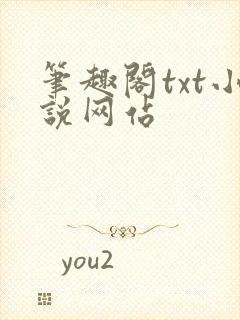 筆趣閣txt小
説网站
you2